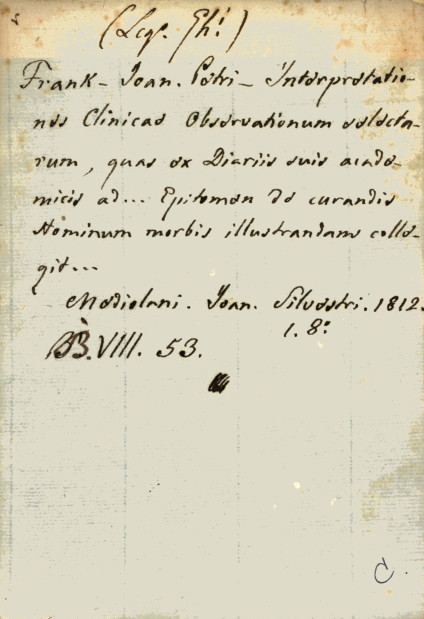 (Legs. Gh!)
Frank - Joan. Petri - Interpretatio-
nes Clinicae Observationum selecta-
rum, quas ex Diariis suis acade-
micis ad... Epitomen de curandis
Hominum morbis illustrandam colle-
git...
Mediolani. Joan. Silvestri. 1812.
1. 8:
BB. VIII. 53.
C.